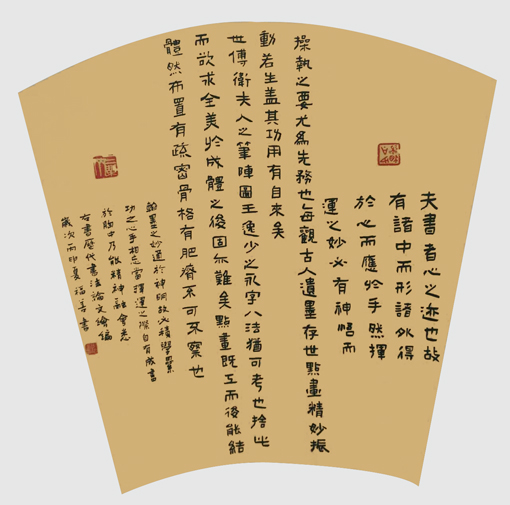 夫書者心之迹也故
有諸中而形諸外得
於心而應於手然揮
運之妙必有神悟而
操執之要尤為先務也每觀古人遺墨存世點畫精妙振
動若生蓋其功用有自來矣
世傳衛夫人之筆陣圖王逸少之永字八法猶可考也捨此
而欲求全美於成體之後固亦難矣點畫既工而後能結
體然布置有疏密骨格有肥瘠不可不察也
翰墨之妙通於神明故必積學累
功之心手相忘當揮運之際自有成書
於胸中乃能精神融會悉
右書歷代書法論文繪編
歲次丙申夏福善書